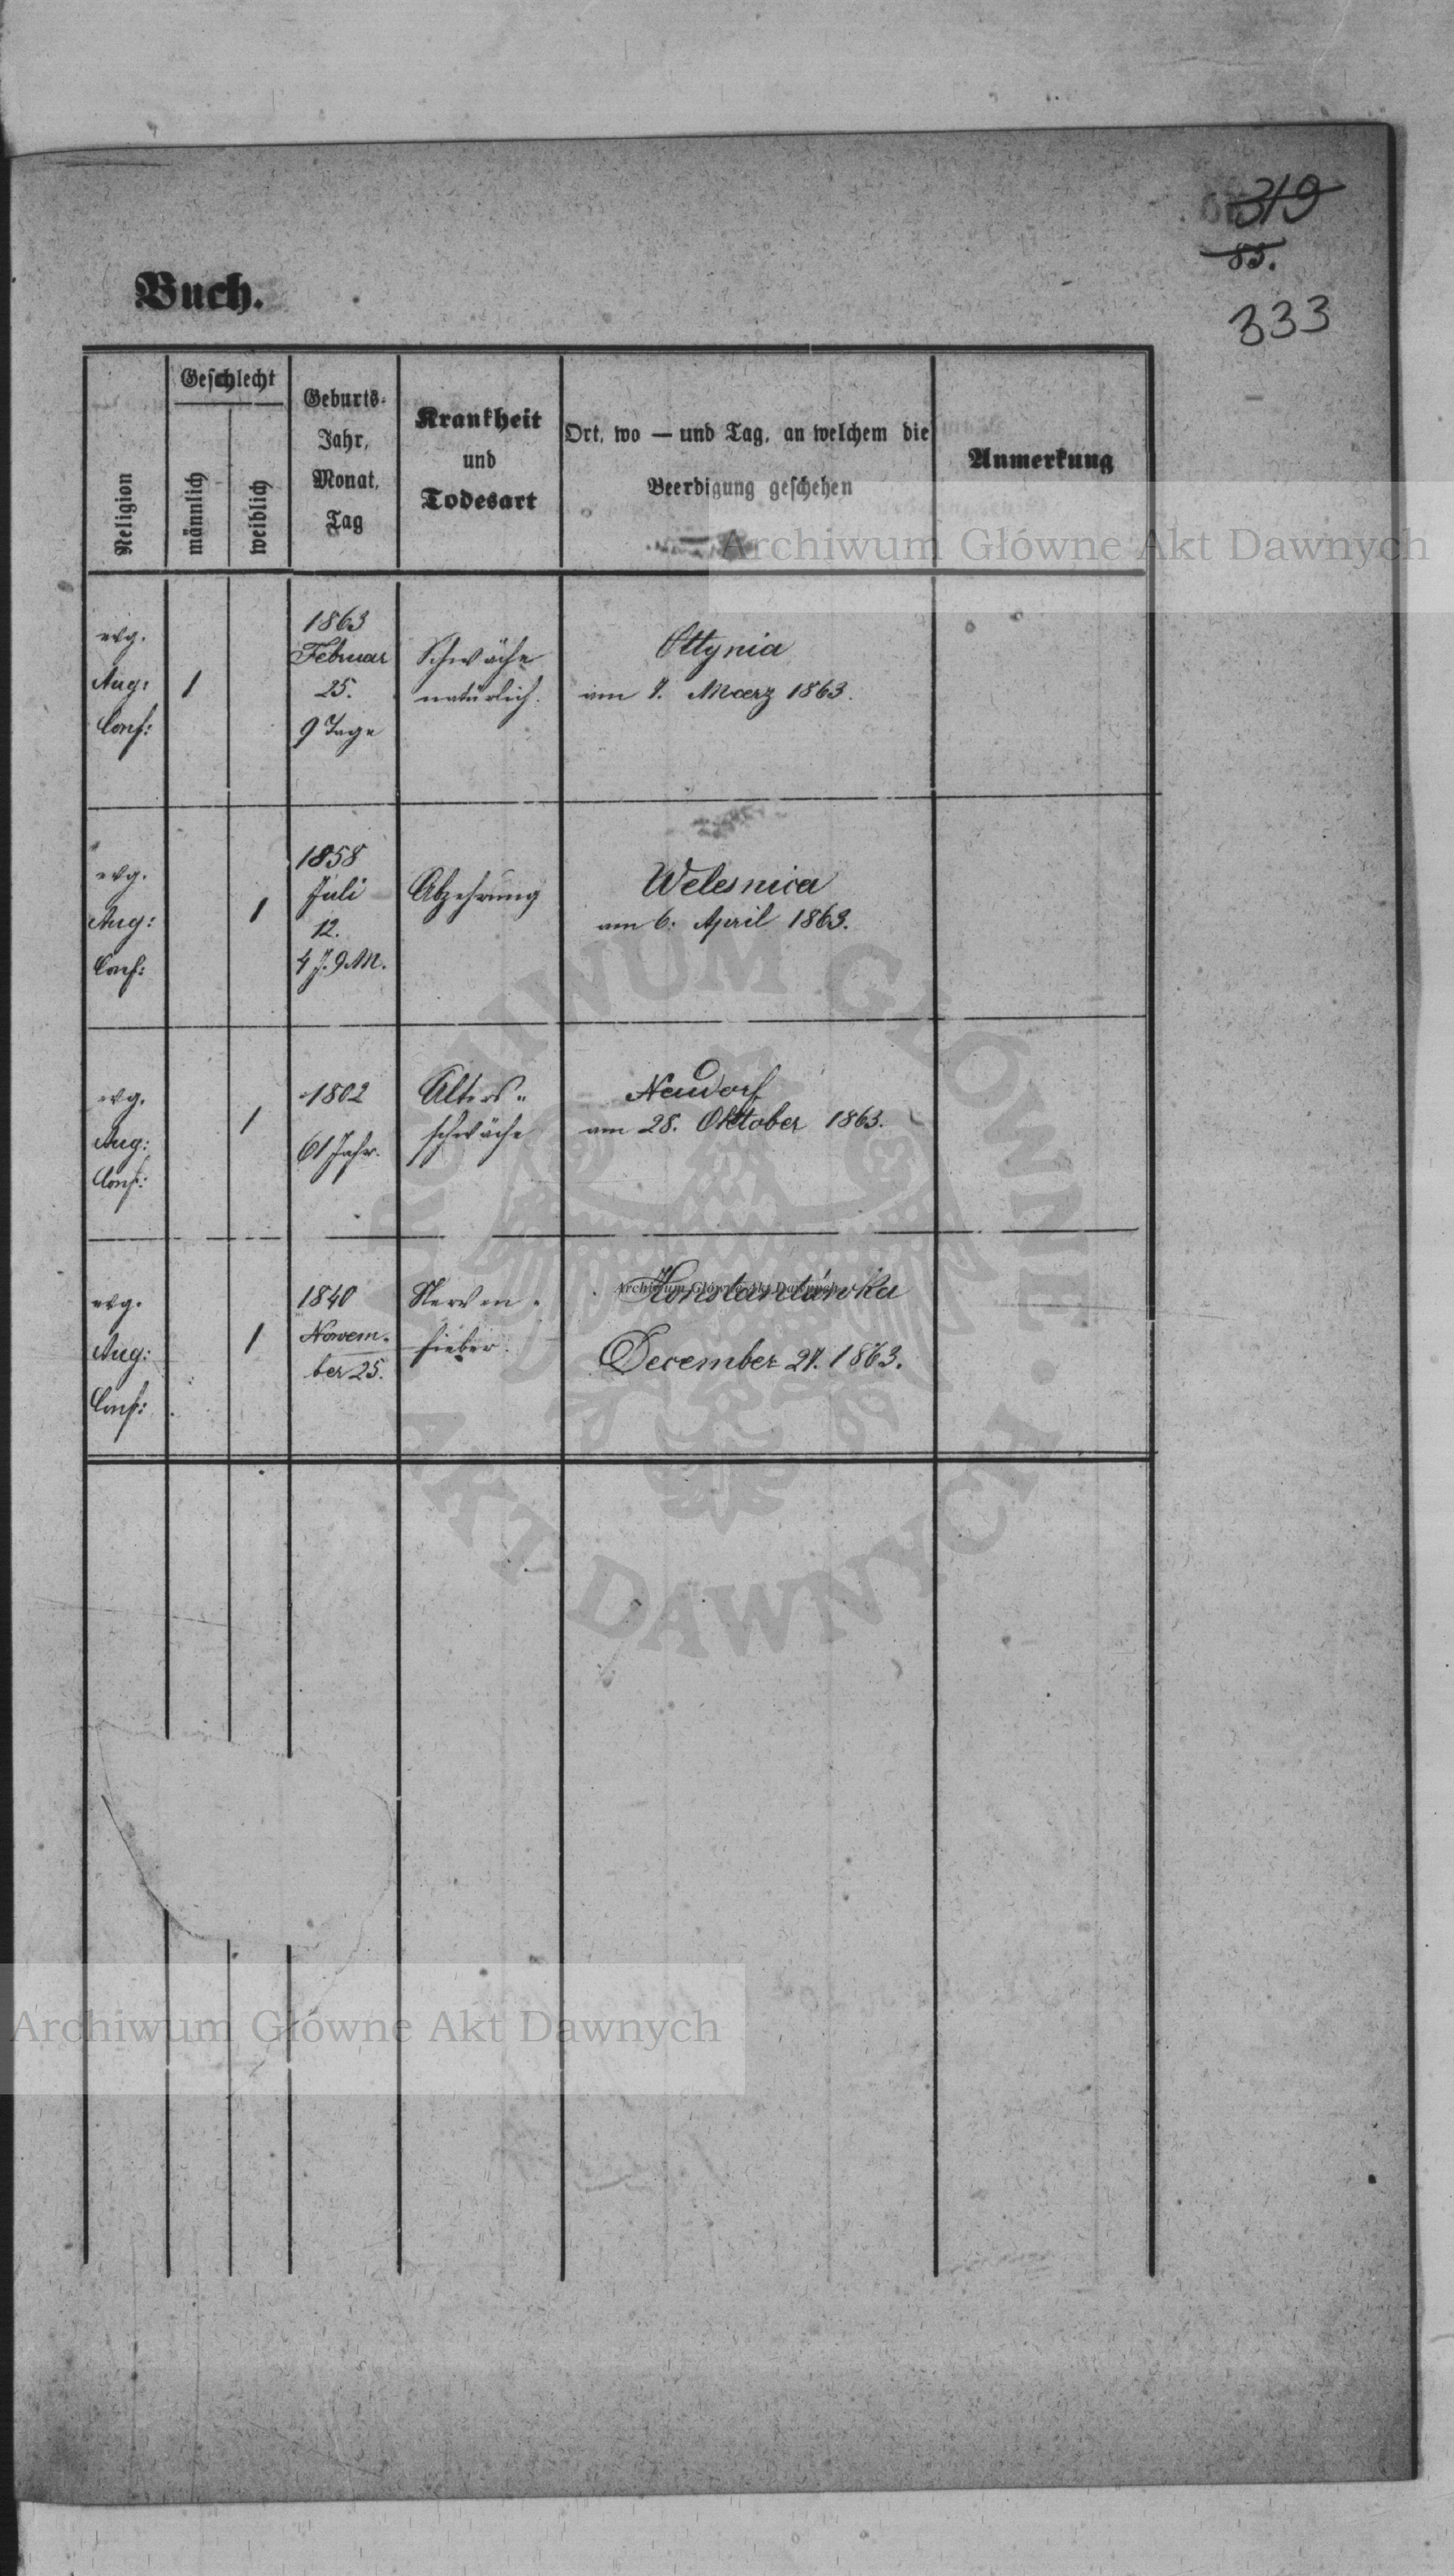 319
85.
333
Buch.
Religion
Geschlecht
männlich
weiblich
Geburts-
Jahr,
Monat,
Tag
Krankheit
und
Todesart
Ort, wo — und Tag, an welchem die
Beerdigung geschehen
Anmerkung
Archiwum Główne Akt Dawnych
evg.
Aug:
Conf:
1
1863
Februar
25.
9 Tage
Schwäche
natürlich.
Ottynia
am 7. Maerz 1863.
evg.
Aug:
Conf:
1
1858
Juli
12.
4 J. 9 M.
Abzehrung
Welesnica
am 6. April 1863.
evg.
Aug:
Conf:
1
1802
61 Jahr.
Alters"
schwäche
Neudorf
am 28. Oktober 1863.
evg.
Aug:
Conf:
1
1840
Novem-
ber 25.
Nerven-
fieber.
Konstantówka
Archiwum Główne Akt Dawnych
December 27. 1863.
ARCHIWUM GŁÓWNE
AKT DAWNYCH
Archiwum Główne Akt Dawnych